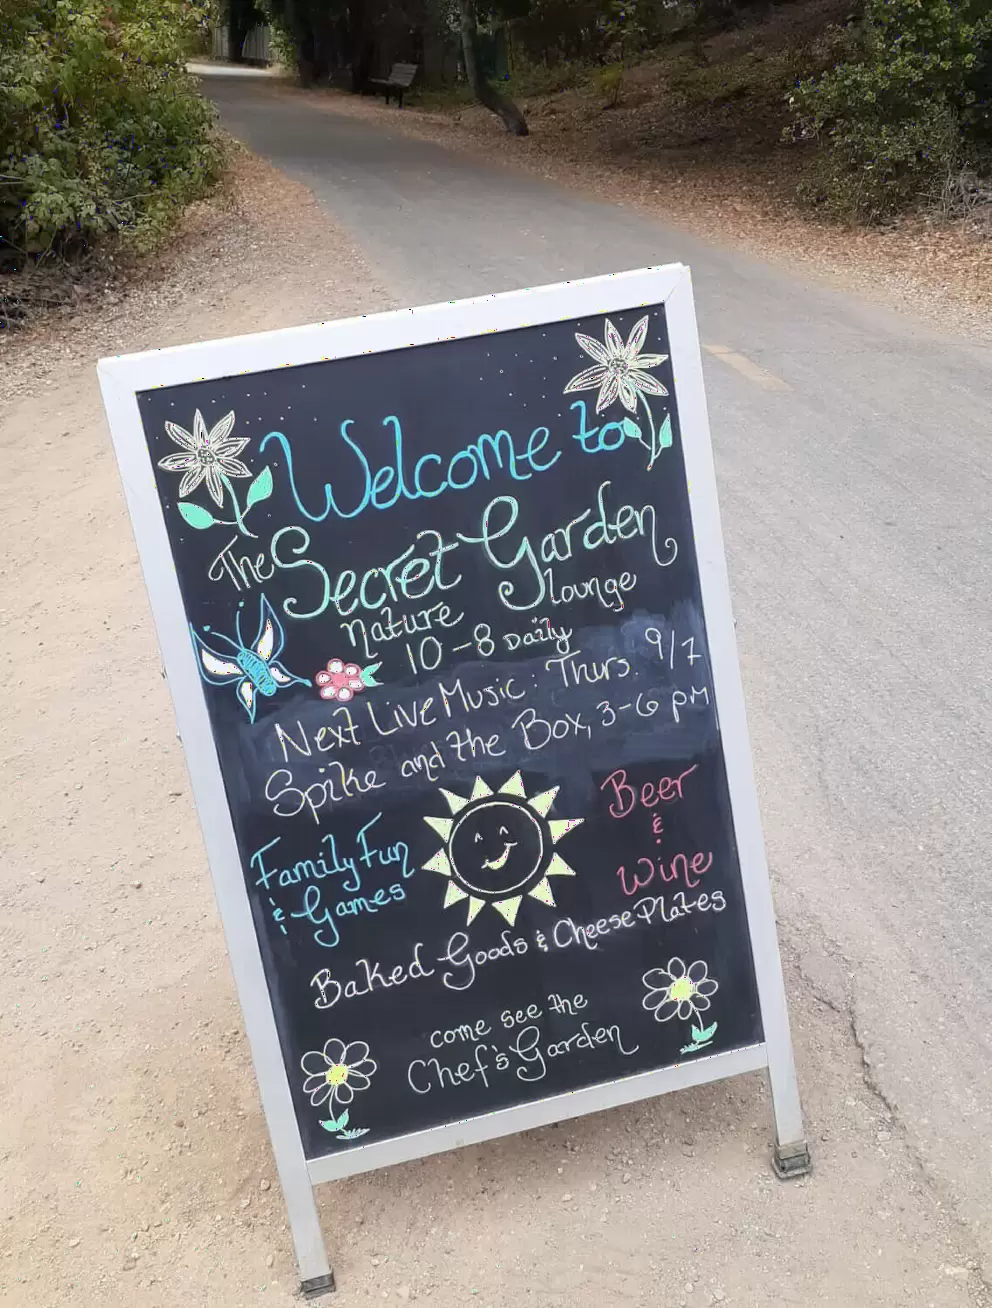 Welcome to
The Secret Garden
nature lounge
10-8 Daily
Next Live Music: Thurs. 9/7
Spike and the Box, 3-6 pm
Family Fun
& Games
Beer
&
Wine
Baked Goods & Cheese Plates
come see the
Chef's Garden